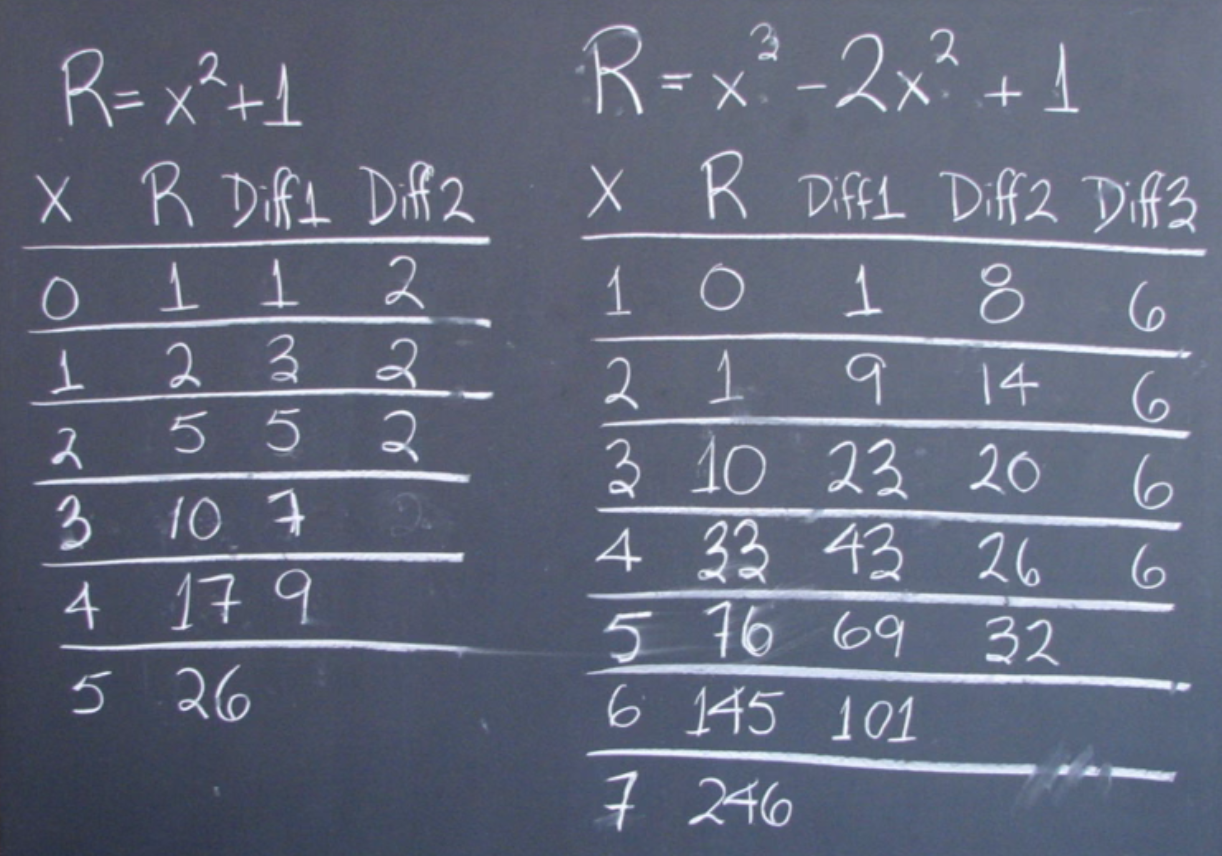 R= x²+1
X R Diff1 Diff2
0 1 1 2
1 2 3 2
2 5 5 2
3 10 7 2
4 17 9
5 26
R= x³ -2x² + 1
X R Diff1 Diff2 Diff3
1 0 1 8 6
2 1 9 14 6
3 10 23 20 6
4 33 43 26 6
5 76 69 32
6 145 101
7 246